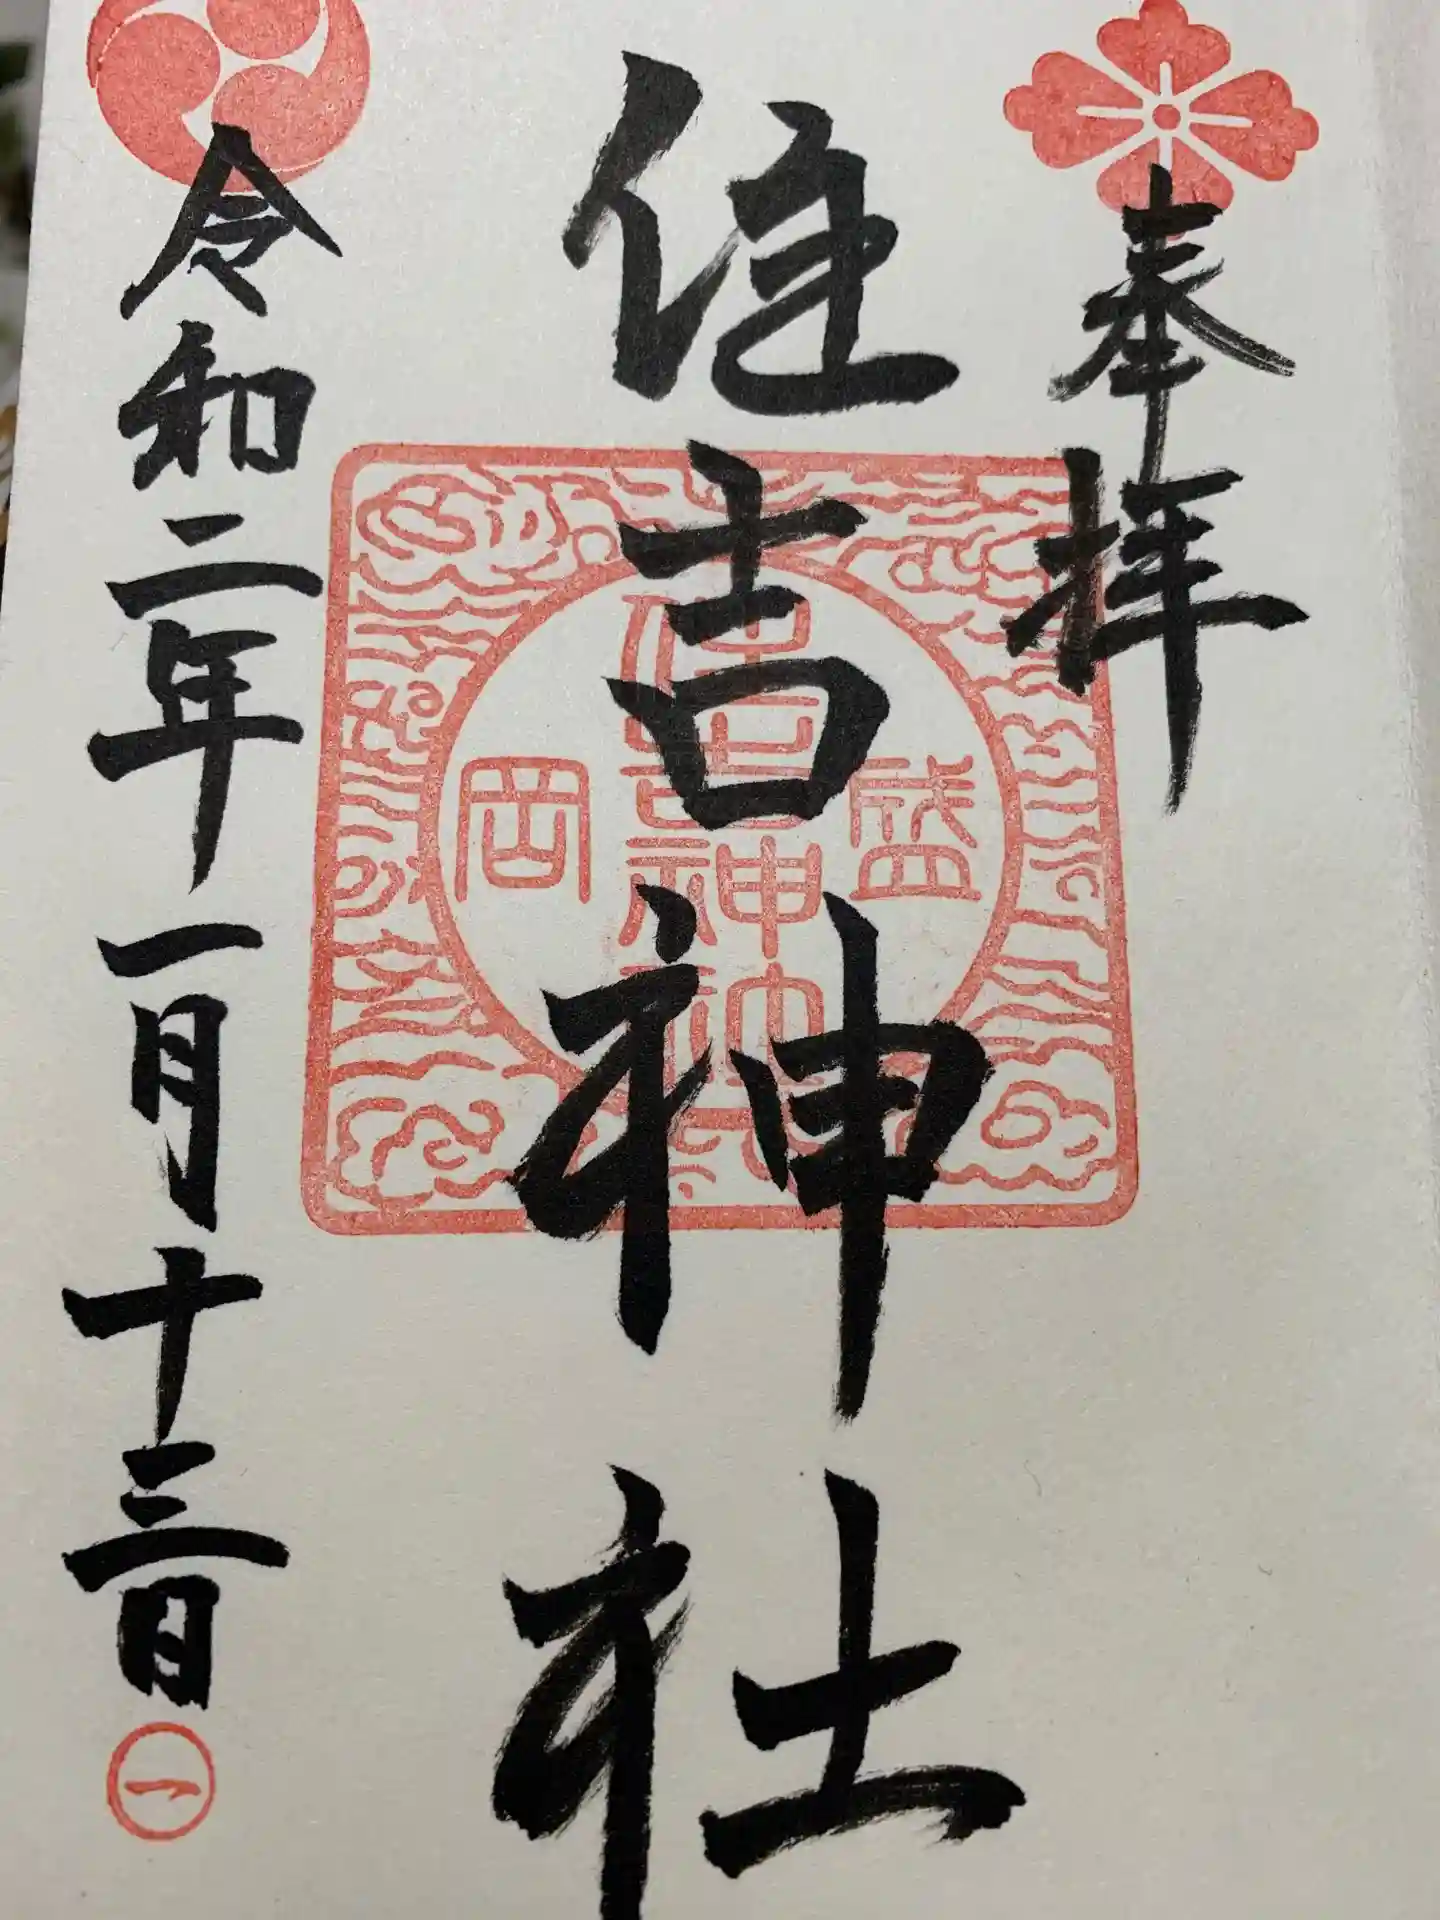 奉拝
住吉神社
盛
住吉神社
岡
令和二年一月十三日
一